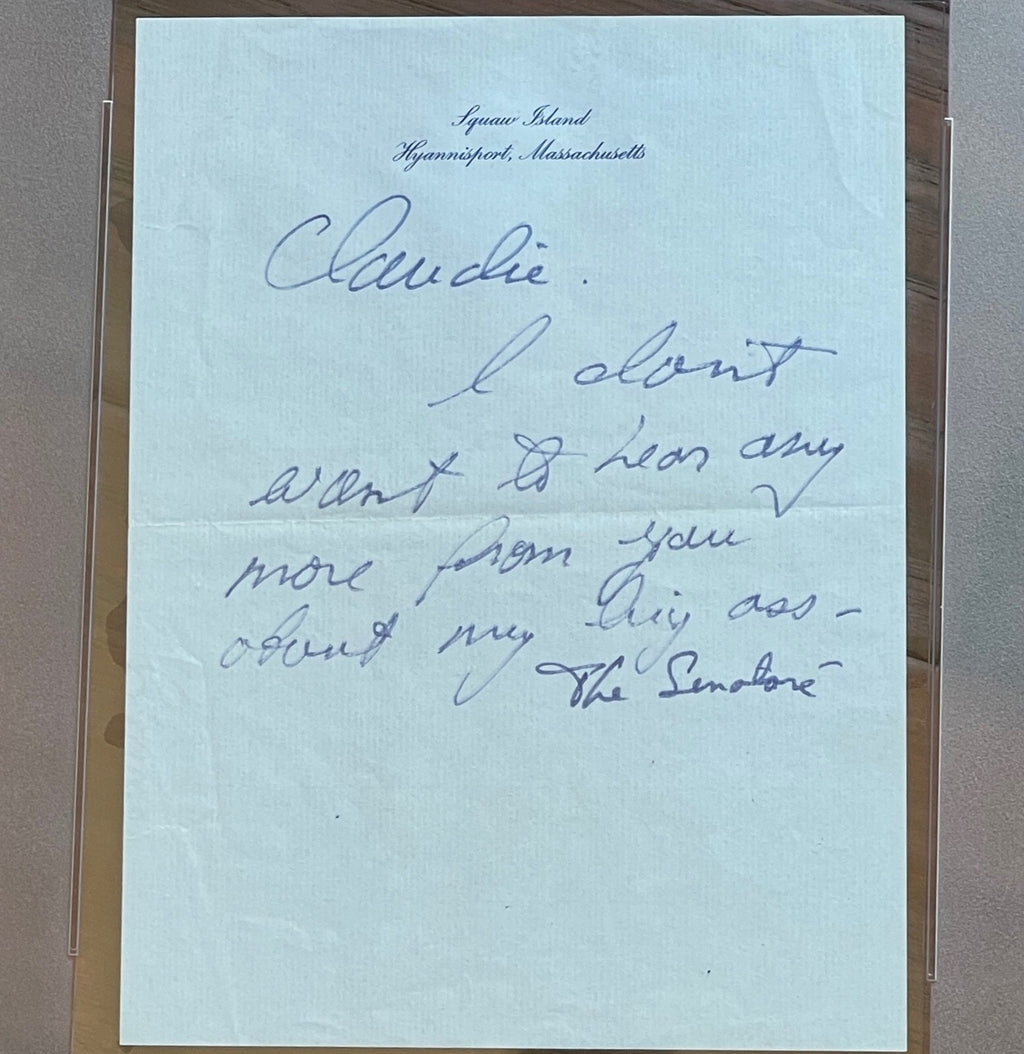 Squaw Island
Hyannisport, Massachusetts
Claudie.
I don't
want to hear any
more from you
about my big ass -
The Senator